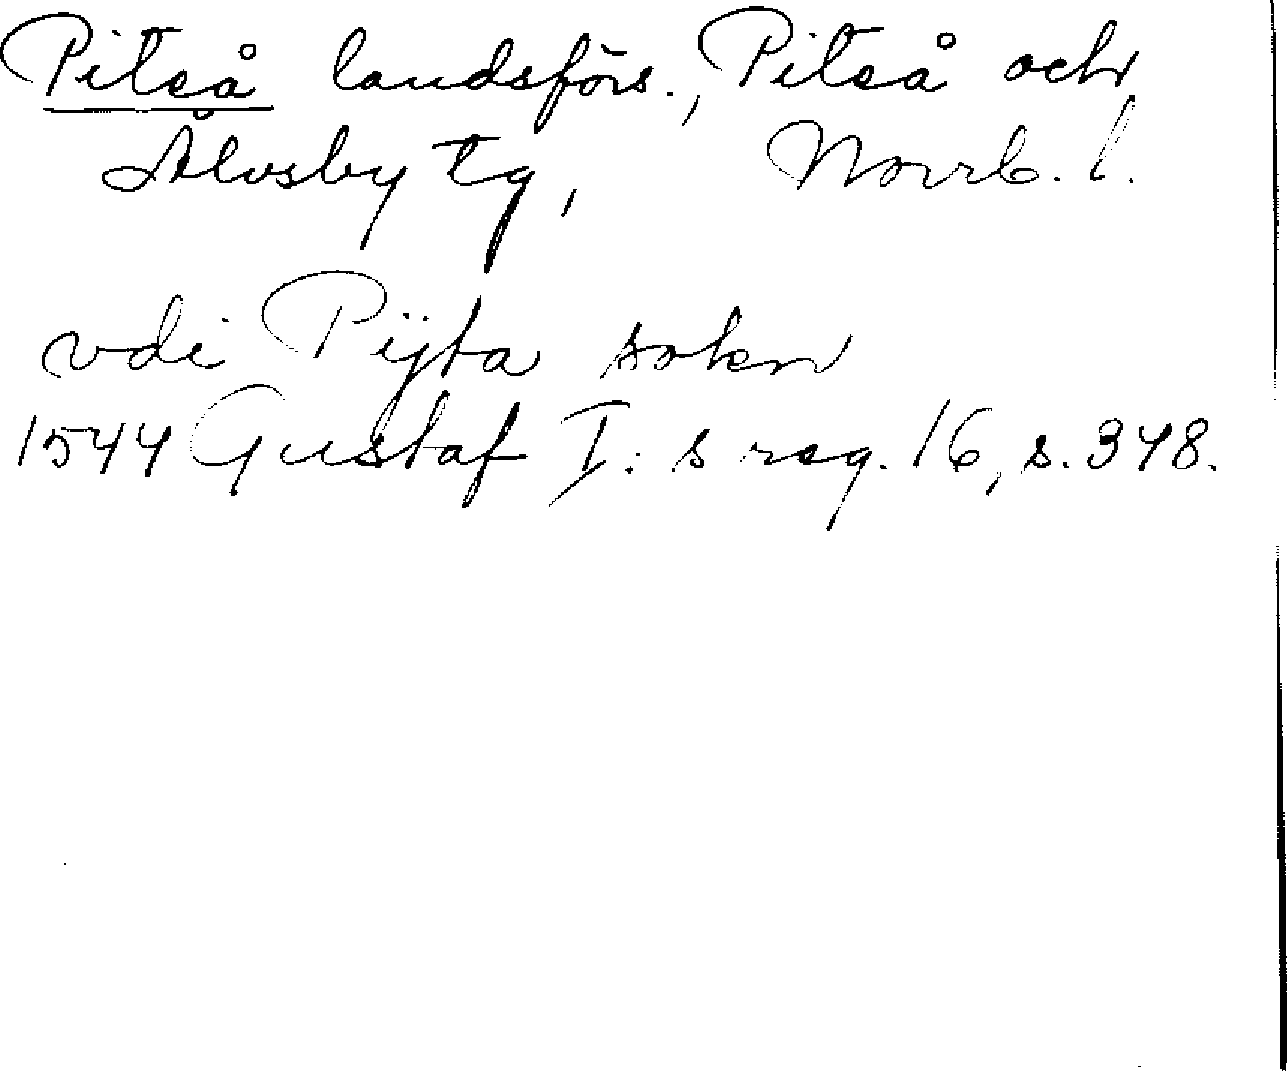 Piteå landsförs., Piteå och
Älvsby tg, Norrb. l.
vdi Pÿta sokn
1544 Gustaf I:s reg. 16, s. 348.